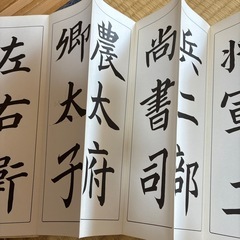 将軍工
兵二部
尚書司
農太府
卿太子
左右衛